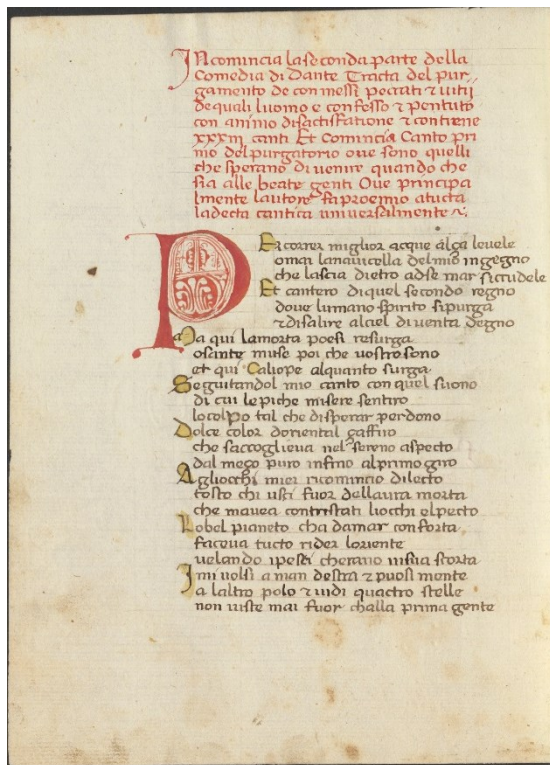 INcomincia la seconda parte della
Comedia di Dante Tracta del pur
gamento de conmessi peccati & uitii
de quali luomo e confesso & pentuto
con animo di sactisfatione & contiene
xxxiii canti Et Comincia Canto pri
mo del purgatorio oue sono quelli
che sperano di uenire quando che
sia alle beate genti Oue principa
lmente lautore fa proemio a tucta
la decta cantica uniuersalmente
PEr correr miglior acque alça leuele
omai la nauicella del mio ingegno
che lascia dietro ad se mar si crudele
Et cantero di quel secondo regno
doue lumano spirito si purga
& di salire al ciel diuenta degno
Ma qui la morta poesi resurga
o sante muse poi che uostro sono
et qui Caliope alquanto surga
Seguitandol mio canto con quel suono
di cui le piche misere sentiro
lo colpo tal che disperar perdono
Dolce color doriental çaffiro
che saccoglieua nel sereno aspecto
dal meço puro infino al primo giro
Agliocchi miei ricomincio dilecto
tosto chi usci fuor dellaura morta
che mauea contristati liocchi el pecto
Lo bel pianeto cha damar conforta
faceua tucto rider loriente
uelando i pesci cherano in sua scorta
I mi uolsi a man destra & puosi mente
a laltro polo & uidi quactro stelle
non uiste mai fuor challa prima gente